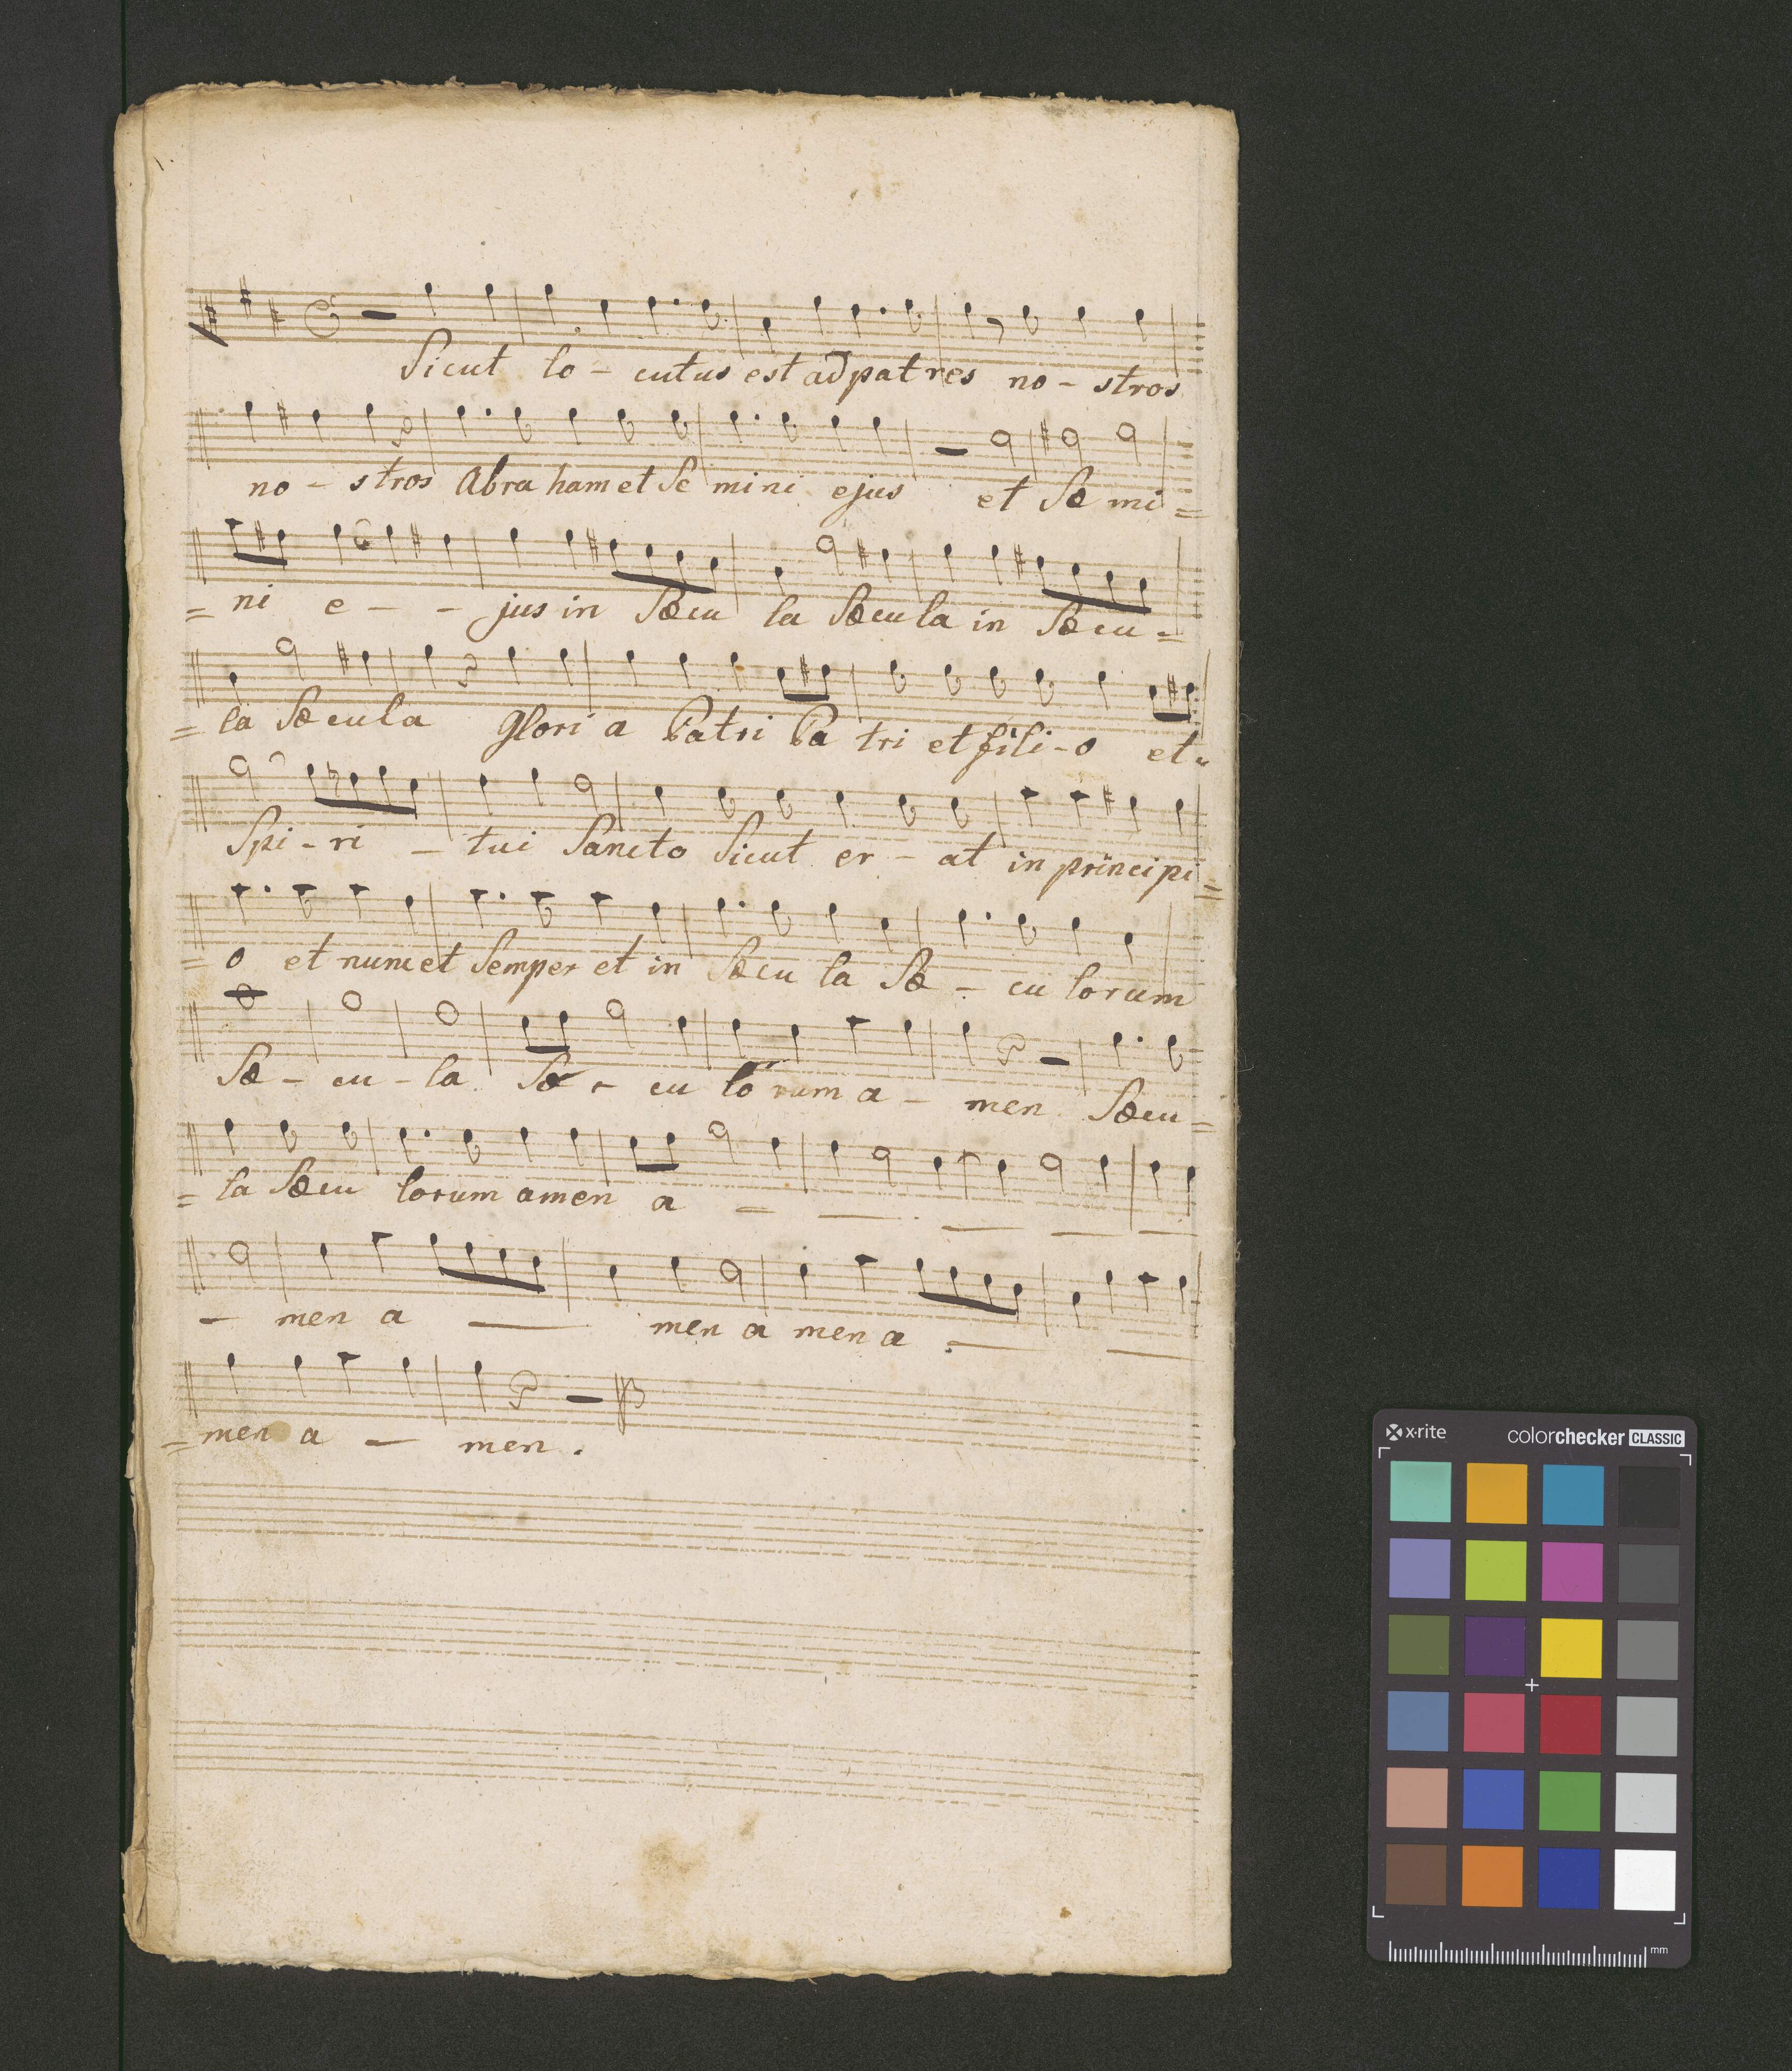 Sicut lo - cutus est ad patres no - stros
no - stros Abra ham et Se mini ejus et Sæ mi =
= ni e - - jus in Sæcu la Sæcula in Sæcu =
= la Sæcula Glori a Patri Pa tri et fili - o et
Spi - ri - tui Sancto Sicut er - at in principi =
= o et nunc et Semper et in Sæcu la Sæ - cu lorum
Sæ - cu - la Sæ - cu lo rum a - men Sæcu =
= la Sæcu lorum amen a = — — — —
— men a — men a men a — —
= men a — men .
x·rite colorchecker CLASSIC
mm